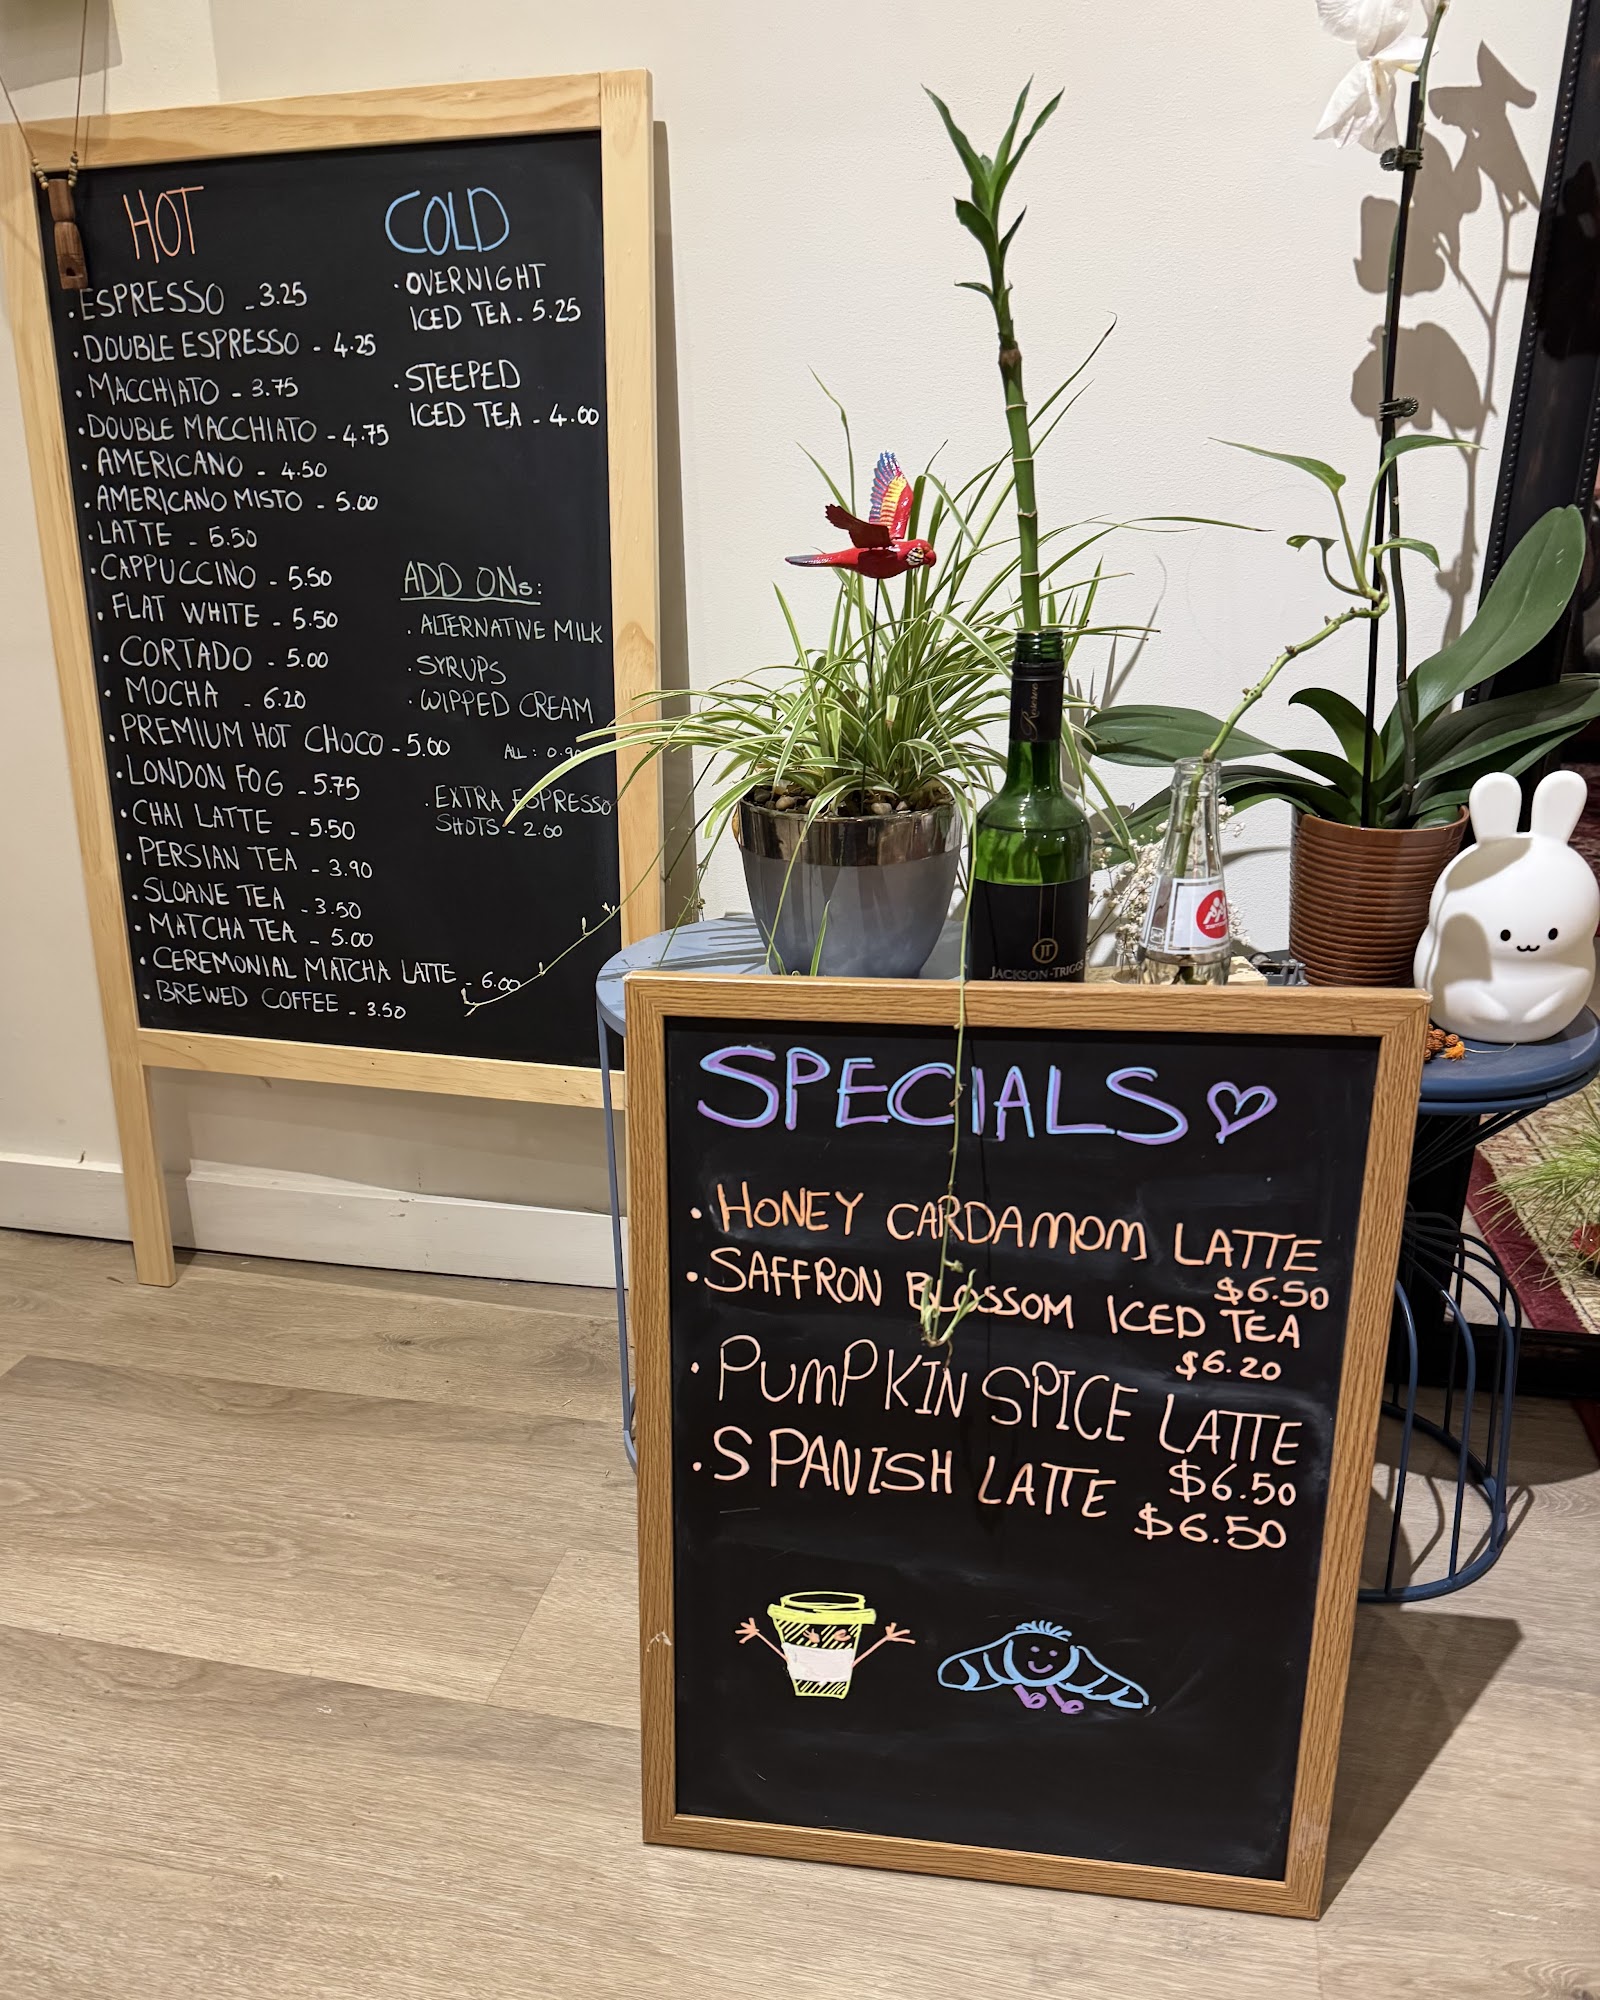 HOT
· ESPRESSO - 3.25
· DOUBLE ESPRESSO - 4.25
· MACCHIATO - 3.75
· DOUBLE MACCHIATO - 4.75
· AMERICANO - 4.50
· AMERICANO MISTO - 5.00
· LATTE - 5.50
· CAPPUCCINO - 5.50
· FLAT WHITE - 5.50
· CORTADO - 5.00
· MOCHA - 6.20
· PREMIUM HOT CHOCO - 5.00
· LONDON FOG - 5.75
· CHAI LATTE - 5.50
· PERSIAN TEA - 3.90
· SLOANE TEA - 3.50
· MATCHA TEA - 5.00
· CEREMONIAL MATCHA LATTE - 6.00
· BREWED COFFEE - 3.50
COLD
· OVERNIGHT
ICED TEA - 5.25
· STEEPED
ICED TEA - 4.00
ADD ONs:
· ALTERNATIVE MILK
· SYRUPS
· WIPPED CREAM
ALL: 0.90
· EXTRA ESPRESSO
SHOTS - 2.00
JT
JACKSON-TRIGGS
SPECIALS
· HONEY CARDAMOM LATTE
$6.50
· SAFFRON BLOSSOM ICED TEA
$6.20
· PUMPKIN SPICE LATTE
$6.50
· SPANISH LATTE
$6.50